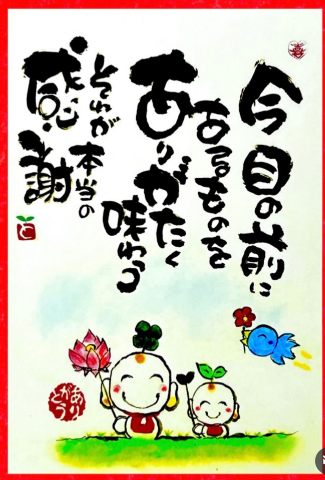 今目の前に
あるものを
ありがたく
味わう
それが
本当の
感謝
ありがとう